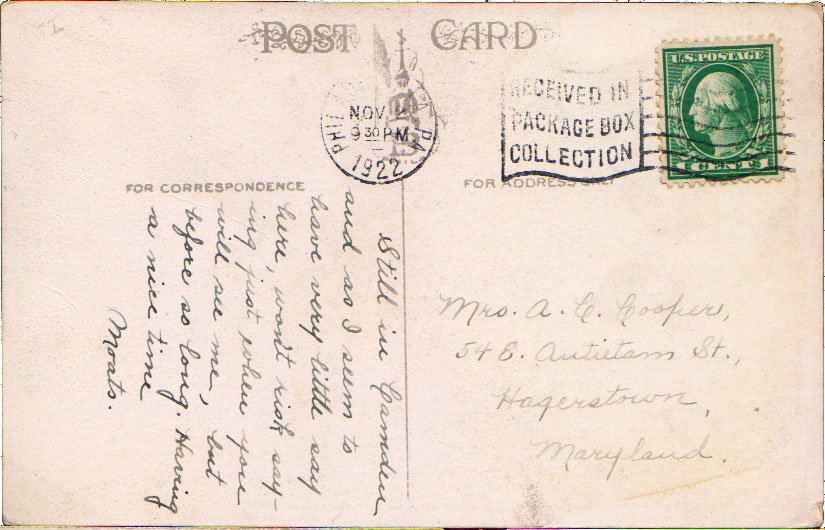 POST CARD
PHIL A PA.
NOV 2
9 30 PM
1922
RECEIVED IN
PACKAGE BOX
COLLECTION
U.S. POSTAGE
CENTS
FOR CORRESPONDENCE
FOR ADDRESS ONLY
Still in Camden
and as I seem to
have very little say
here, won't risk say-
ing just when you
will see me, but
before so long. Having
a nice time
Moats.
Mrs. A. C. Cooper,
54 E. Antietam St.,
Hagerstown,
Maryland.